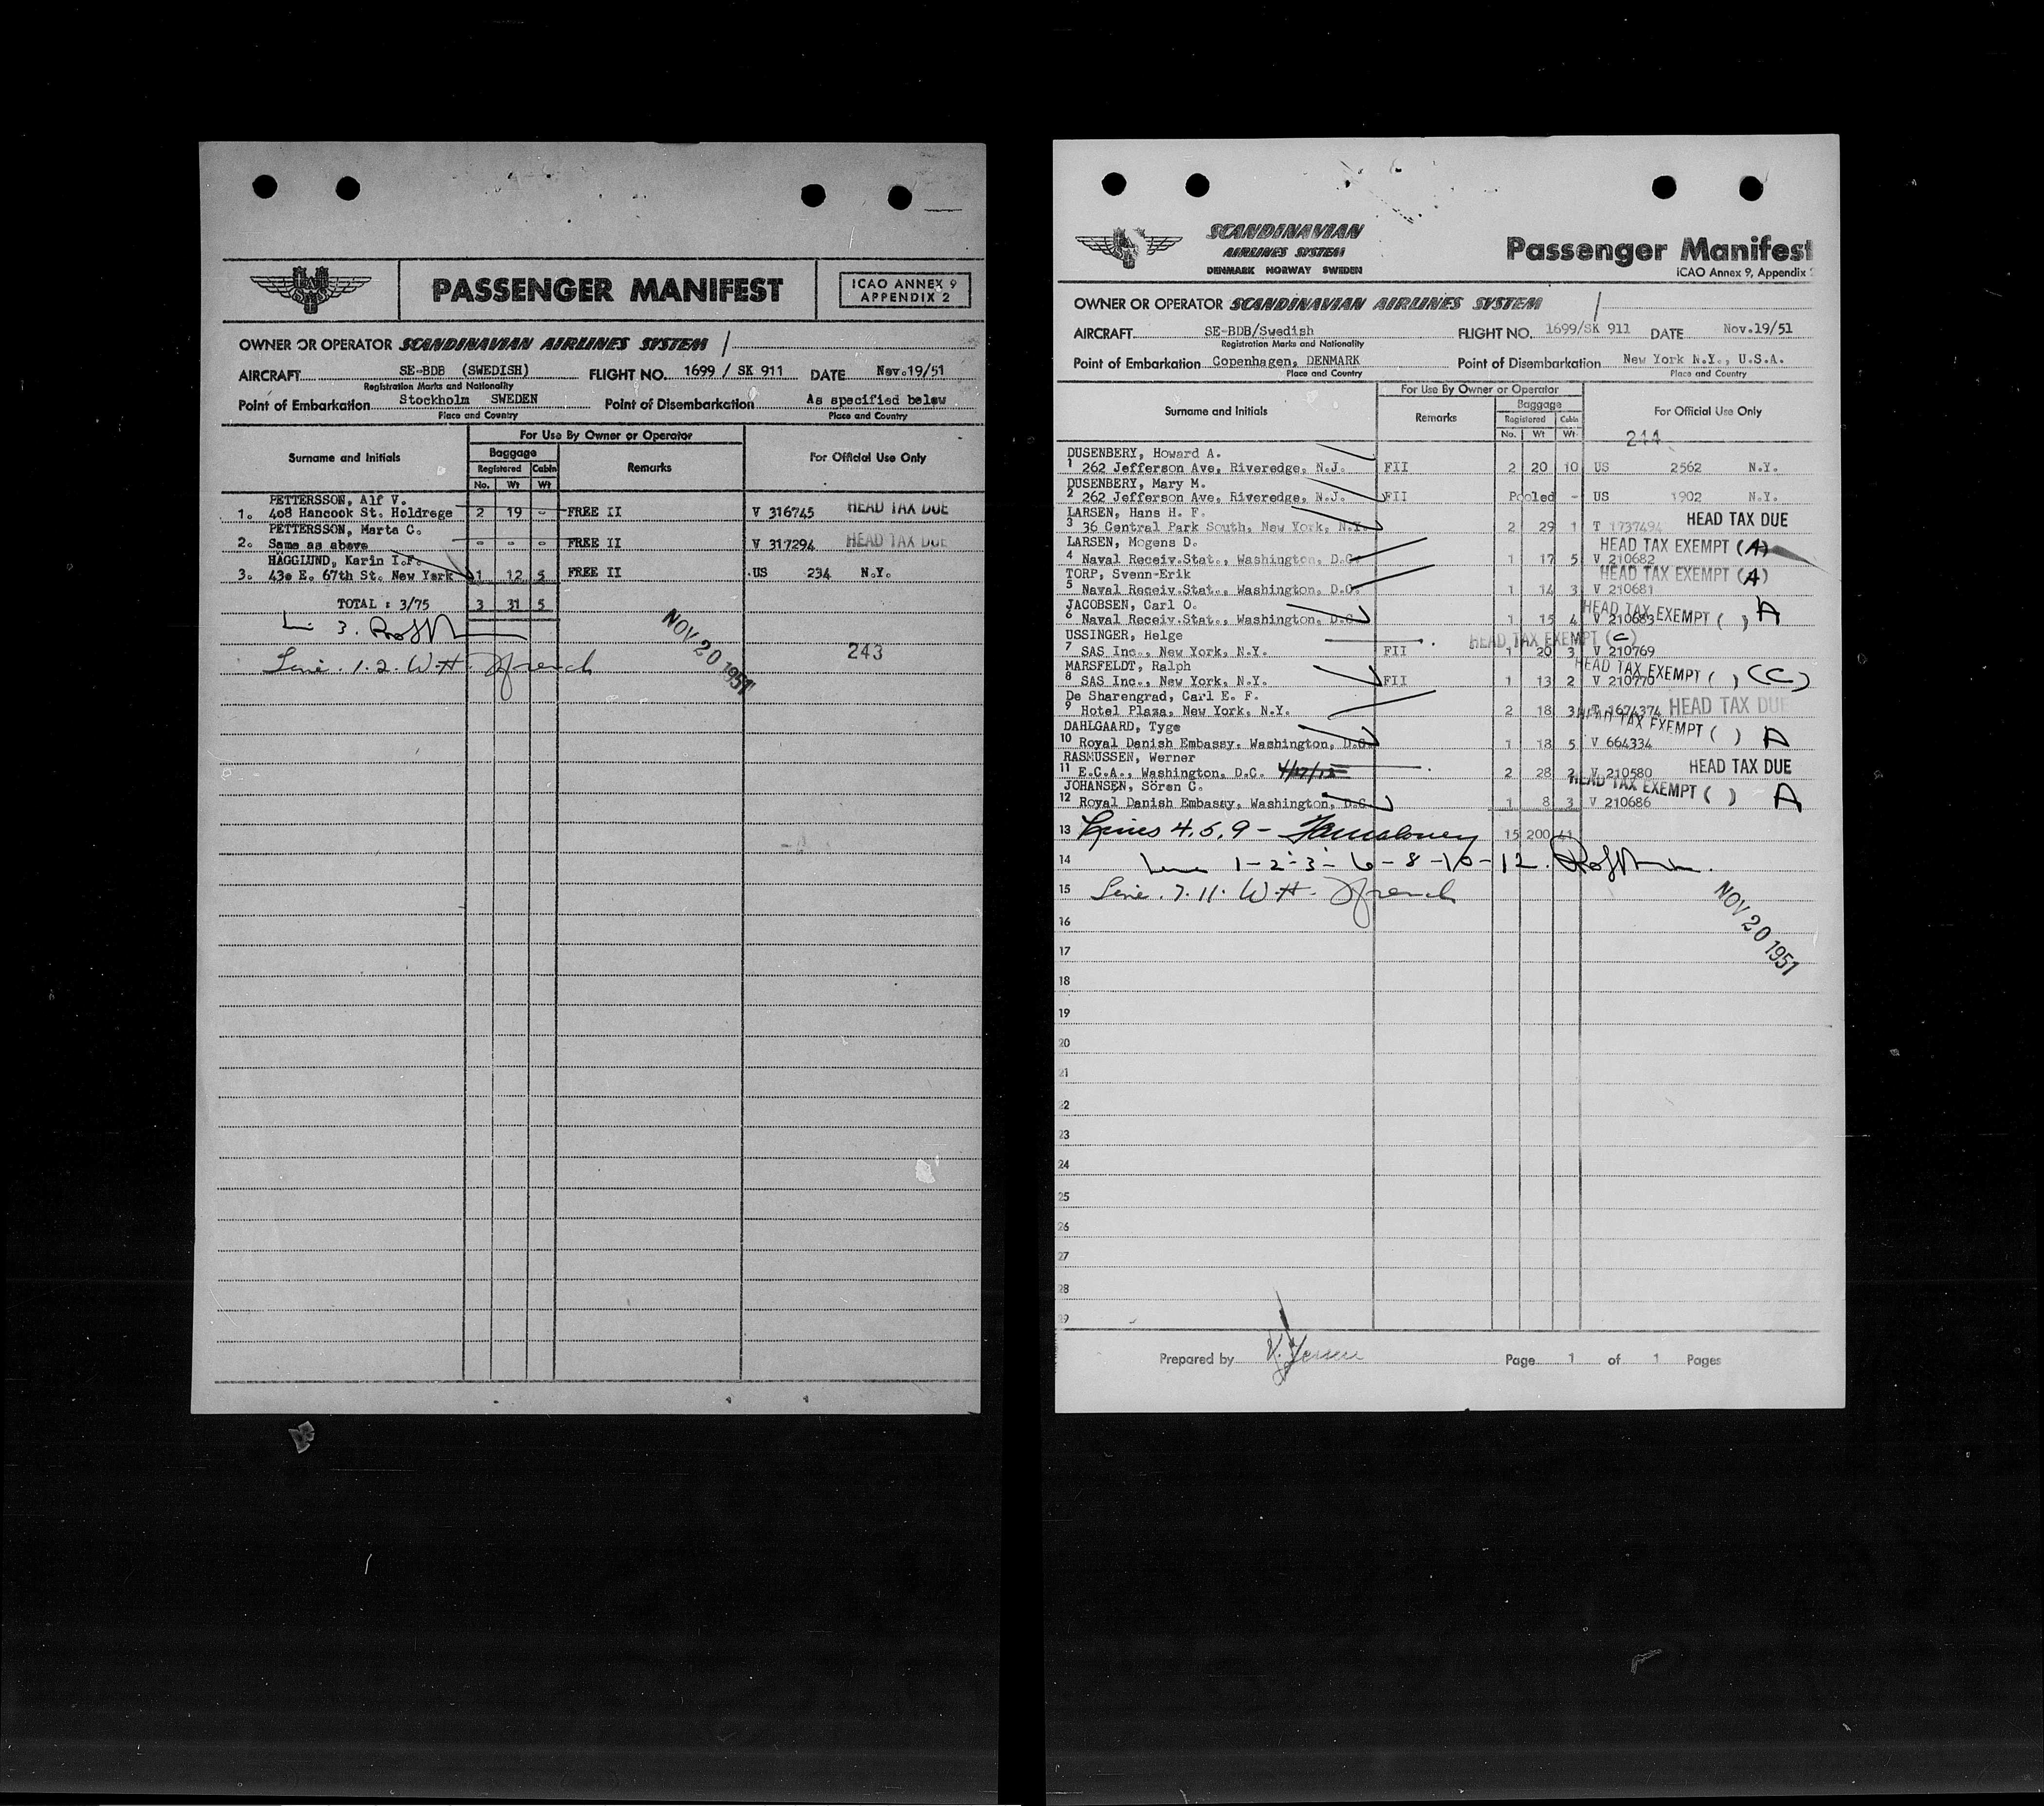 PASSENGER MANIFEST
ICAO ANNEX 9
APPENDIX 2
OWNER OR OPERATOR SCANDINAVIAN AIRLINES SYSTEM /
AIRCRAFT SE-BDB (SWEDISH) FLIGHT NO. 1699 / SK 911 DATE Nov.19/51
Registration Marks and Nationality
Point of Embarkation Stockholm SWEDEN Point of Disembarkation As specified below
Place and Country Place and Country
For Use By Owner or Operator
Surname and Initials Baggage Remarks For Official Use Only
Registered Cabin
No. Wt Wt
PETTERSSON, Alf V.
1. 408 Hancook St. Holdrege 2 19 - FREE II V 316745 HEAD TAX DUE
PETTERSSON, Marta C.
2. Same as above - - - FREE II V 317294 HEAD TAX DUE
HÄGGLUND, Karin I.F.
3. 430 E. 67th St. New York 1 12 5 FREE II US 234 N.Y.
TOTAL : 3/75 3 31 5
3.
NOV 20 1951
243
Line . 1. 2. W.H. French
SCANDINAVIAN
AIRLINES SYSTEM
DENMARK NORWAY SWEDEN
Passenger Manifest
ICAO Annex 9, Appendix
OWNER OR OPERATOR SCANDINAVIAN AIRLINES SYSTEM /
AIRCRAFT SE-BDB/Swedish FLIGHT NO. 1699/SK 911 DATE Nov.19/51
Registration Marks and Nationality
Point of Embarkation Copenhagen, DENMARK Point of Disembarkation New York N.Y., U.S.A.
Place and Country Place and Country
For Use By Owner or Operator
Surname and Initials Remarks Baggage For Official Use Only
Registered Cabin
No. Wt Wt
244
DUSENBERY, Howard A.
1 262 Jefferson Ave, Riveredge, N.J. FII 2 20 10 US 2562 N.Y.
DUSENBERY, Mary M.
2 262 Jefferson Ave, Riveredge, N.J. FII Pooled - US 1902 N.Y.
LARSEN, Hans H. F.
3 36 Central Park South, New York, N.Y. 2 29 1 T 1737494 HEAD TAX DUE
LARSEN, Mogens D. HEAD TAX EXEMPT (A)
4 Naval Receiv.Stat., Washington, D.C. 1 17 5 V 210682
TORP, Svenn-Erik HEAD TAX EXEMPT (A)
5 Naval Receiv.Stat., Washington, D.C. 1 14 3 V 210681
JACOBSEN, Carl O. HEAD TAX EXEMPT ( ) A
6 Naval Receiv.Stat., Washington, D.C. 1 15 4 V 210683
USSINGER, Helge HEAD TAX EXEMPT (C)
7 SAS Inc., New York, N.Y. FII 1 20 3 V 210769
MARSFELDT, Ralph HEAD TAX EXEMPT ( ) (C)
8 SAS Inc., New York, N.Y. FII 1 13 2 V 210770
De Sharengrad, Carl E. F.
9 Hotel Plaza, New York, N.Y. 2 18 3 T 1674374 HEAD TAX DUE
DAHLGAARD, Tyge HEAD TAX EXEMPT ( ) A
10 Royal Danish Embassy, Washington, D.C. 1 18 5 V 664334
RASMUSSEN, Werner
11 E.C.A., Washington, D.C. 2 28 2 V 210580 HEAD TAX DUE
JOHANSEN, Sören C. HEAD TAX EXEMPT ( ) A
12 Royal Danish Embassy, Washington, D.C. 1 8 3 V 210686
13 Lines 4, 5, 9 - 15 200 41
14 1-2-3-6-8-10-12.
15 Line . 7. 11. W.H. French
NOV 20 1951
16
17
18
19
20
21
22
23
24
25
26
27
28
29
Prepared by Page 1 of 1 Pages